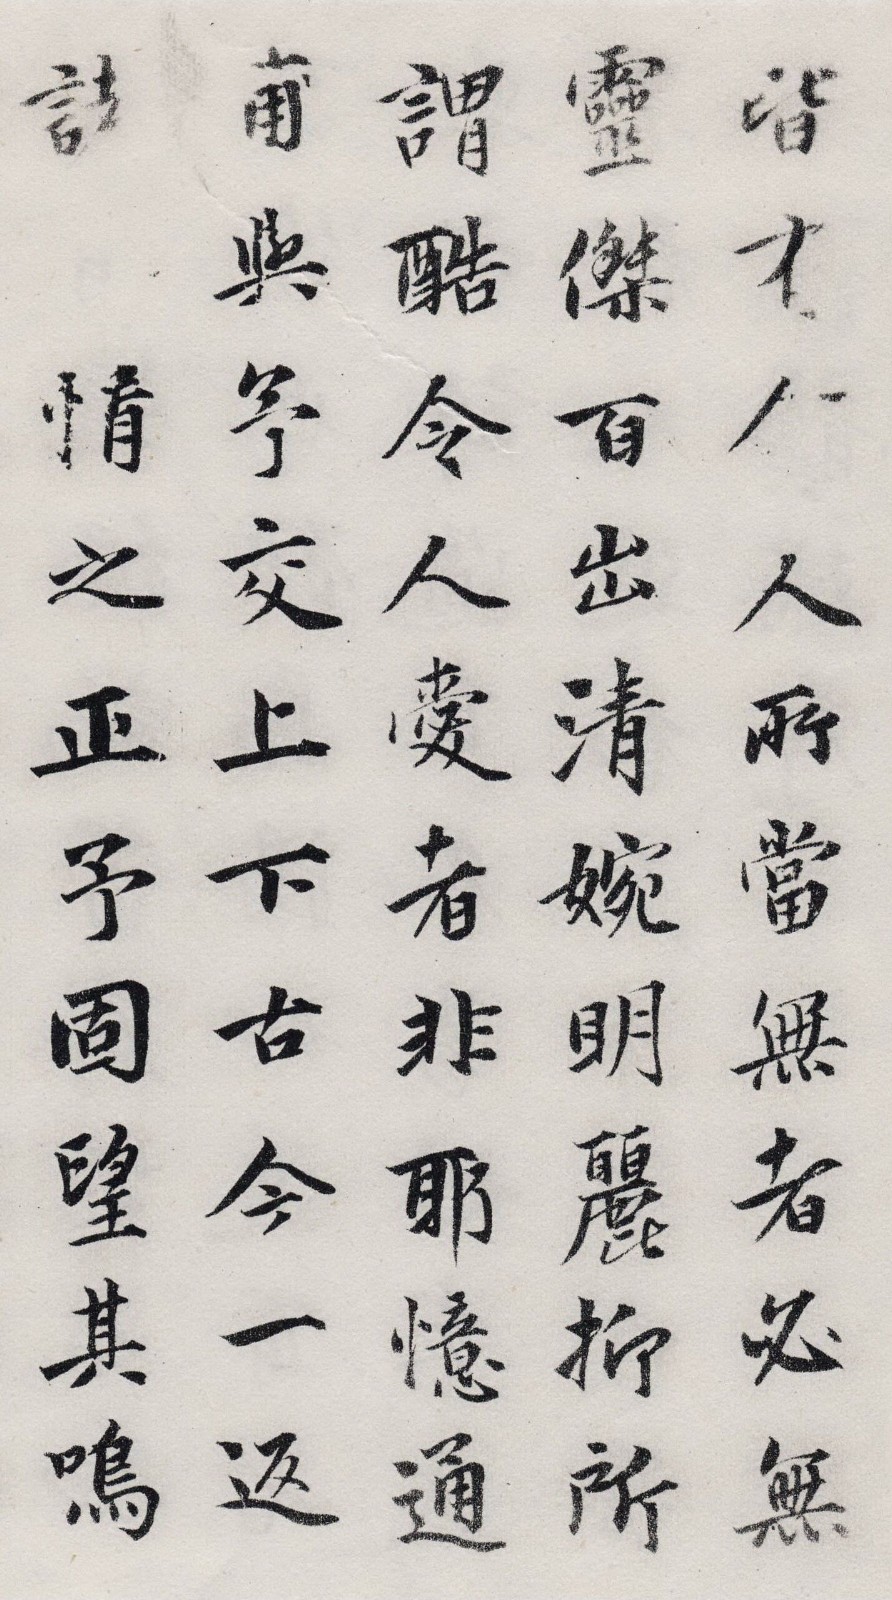 皆才人人所當無者必無
靈傑百出清婉明麗抑所
謂酷令人愛者非耶憶通
甫與予交上下古今一返
詩情之正予固望其鳴